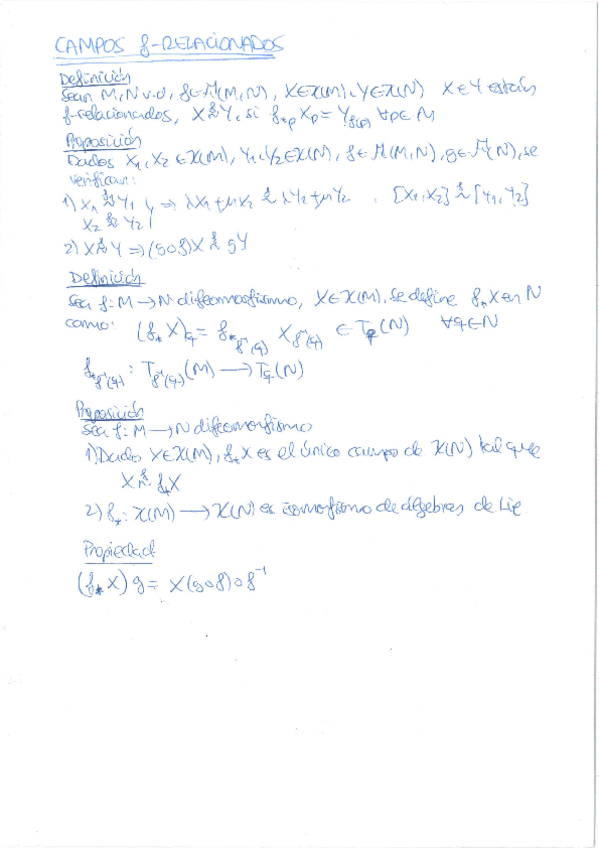 CAMPOS f-RELACIONADOS
Definición
Sean M, N v.d, f∈F(M,N), X∈X(M), Y∈X(N) X e Y están
f-relacionados, X ~f Y, si f*p Xp = Yf(p) ∀p∈M
Proposición
Dados X1, X2 ∈X(M), Y1, Y2∈X(N), f∈F(M,N), g∈F(N), se
verifican:
1) X1 ~f Y1 } ⇒ λX1+μX2 ~f λY1+μY2 , [X1,X2] ~f [Y1,Y2]
X2 ~f Y2
2) X ~f Y ⇒ (g∘f)X ~f gY
Definición
Sea f: M → N difeomorfismo, X∈X(M). Se define f*X en N
como: (f*X)q = f*f⁻¹(q) Xf⁻¹(q) ∈ Tq(N) ∀q∈N
f*f⁻¹(q) : Tf⁻¹(q)(M) → Tq(N)
Proposición
Sea f: M → N difeomorfismo
1) Dado X∈X(M), f*X es el único campo de X(N) tal que
X ~f f*X
2) f* : X(M) → X(N) es isomorfismo de álgebras de Lie
Propiedad
(f*X)g = X(g∘f)∘f⁻¹